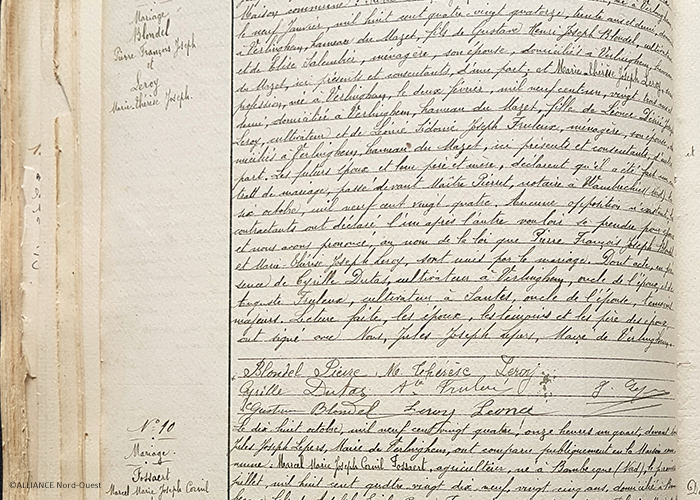 Mariage
Blondel
Pierre-François Joseph
et
Leroy
Marie-Thérèse Joseph.
Maison commune
le neuf Janvier, mil huit cent quatre-vingt quatorze, trente ans et demi,
à Verlinghem, hameau du Mazet, fils de Gustave Henri Joseph Blondel,
et de Elise Salembier, ménagère, son épouse, domiciliés à Verlinghem, hameau
du Mazet, ici présents et consentants, d'une part, et Marie Thérèse Joseph Leroy,
profession, née à Verlinghem, le deux février, mil neuf cent un, vingt trois ans
demi, domiciliée à Verlinghem, hameau du Mazet, fille de Léonce Désiré
Leroy, cultivateur et de Léonie Sidonie Joseph Fruleux, ménagère, son épouse,
domiciliés à Verlinghem, hameau du Mazet, ici présents et consentants,
part. Les futurs époux et leur père et mère, déclarent qu'il a été fait un
de mariage, passé devant Maître Pierret, notaire à Wambrechies
six octobre, mil neuf cent vingt quatre. Aucune opposition n'existant, les
contractants ont déclaré l'un après l'autre vouloir se prendre pour époux
et nous avons prononcé, au nom de la loi que Pierre François Joseph Blondel
et Marie Thérèse Joseph Leroy, sont unis par le mariage. Dont acte, en présence
de Cyrille Dutas, cultivateur à Verlinghem, oncle de l'époux, et de
Fruleux, cultivateur à Santes, oncle de l'épouse, témoins
majeurs. Lecture faite, les époux, les témoins et les père des époux,
ont signé avec Nous, Jules Joseph Lepers, Maire de Verlinghem.
Blondel Pierre M. Thérèse Leroy
Cyrille Dutas
Blondel Leroy Léonce
N° 10
Mariage.
Fossaert
Marcel Marie Joseph Camil
Le dix huit octobre, mil neuf cent vingt quatre, onze heures un quart, devant
Jules Joseph Lepers, Maire de Verlinghem, ont comparu publiquement en la Maison
commune: Marcel Marie Joseph Camil Fossaert, agriculteur, né à Bambecque (Nord), le premier
juillet, mil huit cent quatre vingt dix neuf, vingt cinq ans, domicilié
©ALLIANCE Nord-Ouest